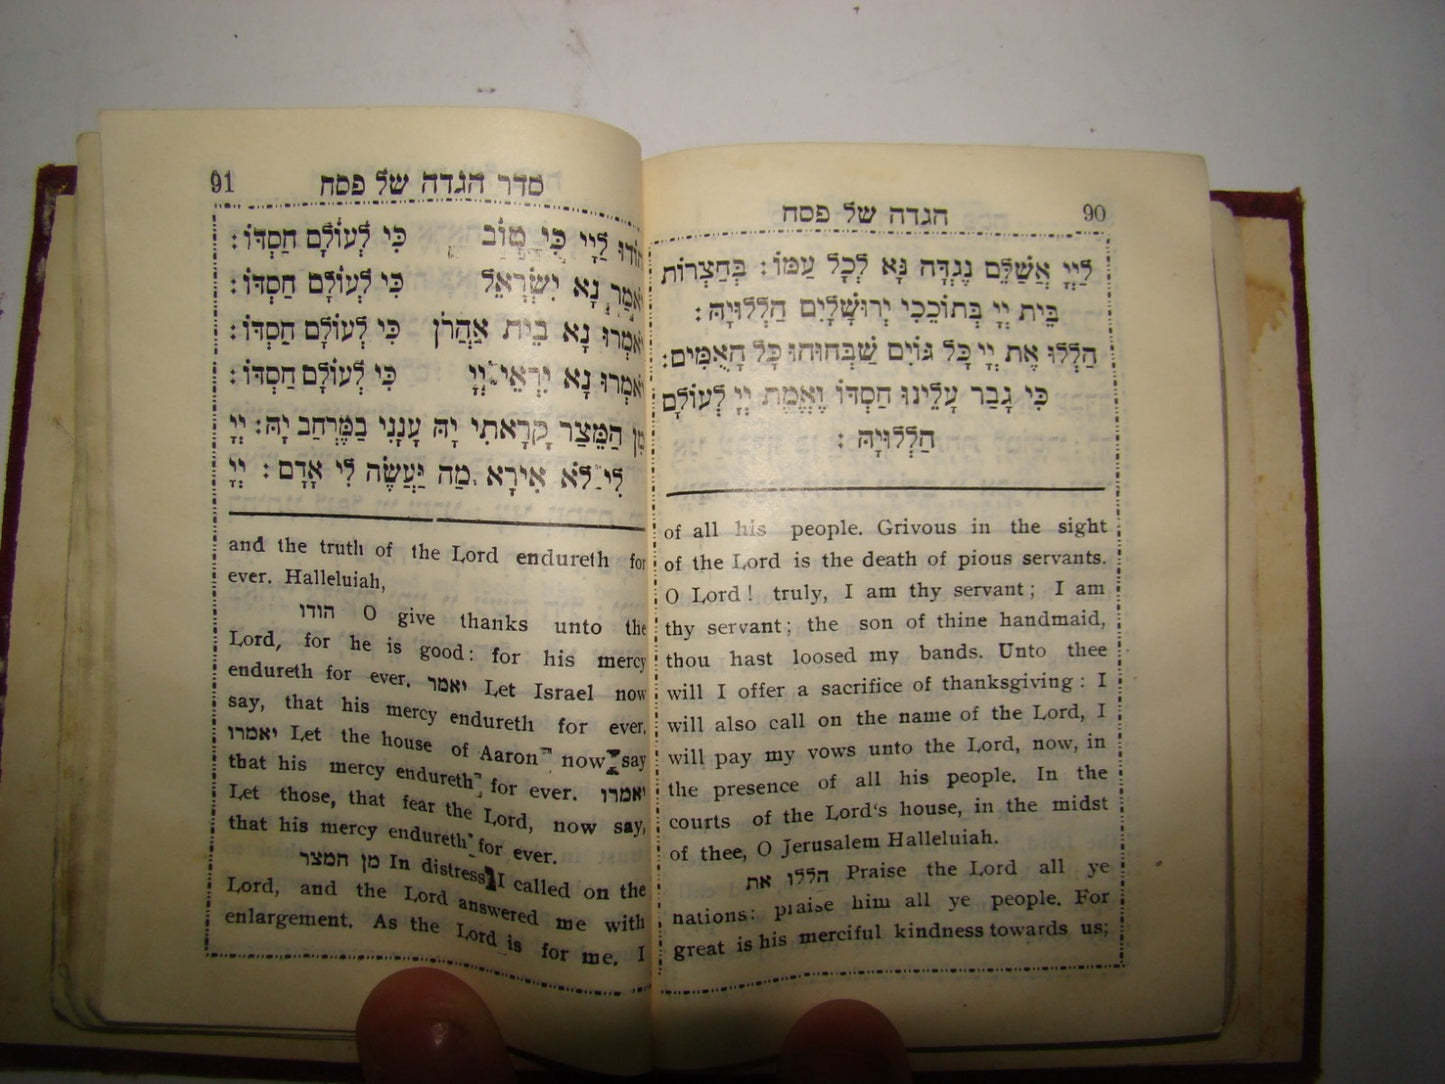 90 הגדה של פסח
לַיְיָ אֲשַׁלֵּם נֶגְדָּה נָּא לְכָל עַמּוֹ: בְּחַצְרוֹת
בֵּית יְיָ בְּתוֹכֵכִי יְרוּשָׁלָיִם הַלְלוּיָהּ:
הַלְלוּ אֶת יְיָ כָּל גּוֹיִם שַׁבְּחוּהוּ כָּל הָאֻמִּים:
כִּי גָבַר עָלֵינוּ חַסְדּוֹ וֶאֱמֶת יְיָ לְעוֹלָם
הַלְלוּיָהּ:
of all his people. Grivous in the sight
of the Lord is the death of pious servants.
O Lord! truly, I am thy servant; I am
thy servant; the son of thine handmaid,
thou hast loosed my bands. Unto thee
will I offer a sacrifice of thanksgiving: I
will also call on the name of the Lord, I
will pay my vows unto the Lord, now, in
the presence of all his people. In the
courts of the Lord's house, in the midst
of thee, O Jerusalem Halleluiah.
הללו את Praise the Lord all ye
nations: praise him all ye people. For
great is his merciful kindness towards us;
91 סדר הגדה של פסח
הוֹדוּ לַיְיָ כִּי טוֹב כִּי לְעוֹלָם חַסְדּוֹ:
יֹאמַר נָא יִשְׂרָאֵל כִּי לְעוֹלָם חַסְדּוֹ:
יֹאמְרוּ נָא בֵית אַהֲרֹן כִּי לְעוֹלָם חַסְדּוֹ:
יֹאמְרוּ נָא יִרְאֵי יְיָ כִּי לְעוֹלָם חַסְדּוֹ:
מִן הַמֵּצַר קָרָאתִי יָהּ עָנָנִי בַמֶּרְחַב יָהּ: יְיָ
לִי לֹא אִירָא מַה יַּעֲשֶׂה לִי אָדָם: יְיָ
and the truth of the Lord endureth for
ever. Halleluiah,
הודו O give thanks unto the
Lord, for he is good: for his mercy
endureth for ever. יאמר Let Israel now
say, that his mercy endureth for ever.
יאמרו Let the house of Aaron now say
that his mercy endureth for ever. יאמרו
Let those, that fear the Lord, now say,
that his mercy endureth for ever.
מן המצר In distress I called on the
Lord, and the Lord answered me with
enlargement. As the Lord is for me. I